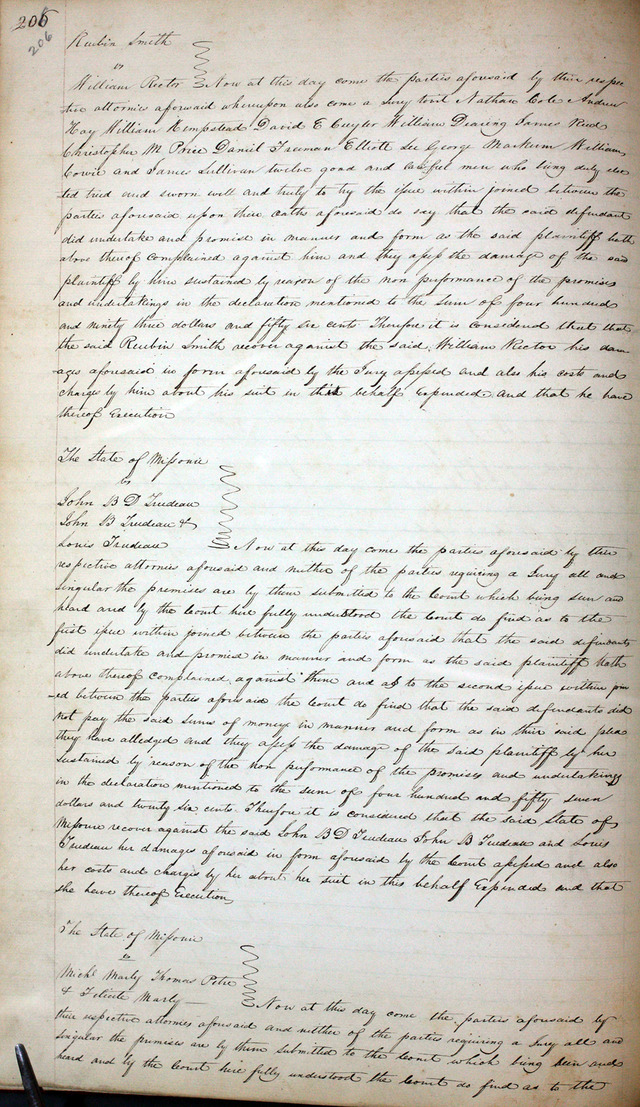 206
206
Reubin Smith
vs
William Rector Now at this day come the parties aforesaid by their respec
tive attornies aforesaid whereupon also come a Jury towit Nathan Cole Andrew
Hay William Hempstead David E Cuyler William Dearing James Reed
Christopher M Price Daniel Freeman Elliott Lee George Markum William
Cowie and James Sullivan twelve good and lawfree men who being duly elec
ted tried and sworn well and truly to try the issue within joined between the
parties aforesaid upon their oaths aforesaid do say that the said defendant
did undertake and promise in manner and form as the said plaintiff hath
above thereof complained against him and they assess the damage of the said
plaintiff by him sustained by reason of the non performance of the promises
and undertakings in the declaration mentioned to the sum of four hundred
and ninety three dollars and fifty six cents Therefore it is considered that
the said Reubin Smith recover against the said William Rector his dam-
-ages aforesaid in form aforesaid by the Jury assessed and also his costs and
charges by him about his suit in this behalf Expended and that he have
thereof Execution
The State of Missouri
vs
John B D Trudeau
John B Trudeau &
Louis Trudeau Now at this day come the parties aforesaid by their
respective attornies aforesaid and neither of the parties requiring a Jury all and
singular the premises are by them submitted to the Court which being seen and
heard and by the Court here fully understood the Court do find as to the
first issue within joined between the parties aforesaid that the said defendants
did undertake and promise in manner and form as the said plaintiff hath
above thereof complained against them and as to the second issue within join
-ed between the parties aforesaid the Court do find that the said defendants did
not pay the said sums of money in manner and form as in their said plea
they have alledged and they assess the damage of the said plaintiff by her
sustained by reason of the non performance of the promises and undertakings
in the declaration mentioned to the sum of four hundred and fifty seven
dollars and twenty six cents Therefore it is considered that the said State of
Missouri recover against the said John B D Trudeau John B Trudeau and Louis
Trudeau her damages aforesaid in form aforesaid by the Court assessed and also
her costs and charges by her about her suit in this behalf Expended and that
she have thereof Execution
The State of Missouri
vs
Michl Marly Thomas Petre
& Felicite Marly Now at this day come the parties aforesaid by
their respective attornies aforesaid and neither of the parties requiring a Jury all and
singular the premises are by them submitted to the Court which being seen and
heard and by the Court here fully understood the Court do find as to the